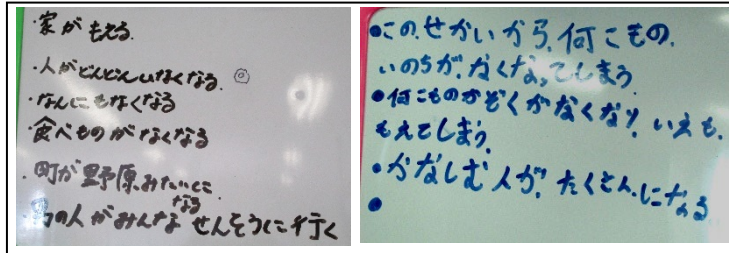 ・家がもえる。
・人がどんどんいなくなる。
・なんにもなくなる
・食べものがなくなる
・町が野原みたいに
なる
・男の人がみんなせんそうに行く
●この、せかいから、何こもの、
いのちが、なくなってしまう。
●何こものかぞくがなくなり、いえも、
もえてしまう。
●かなしむ人が、たくさん、になる
●